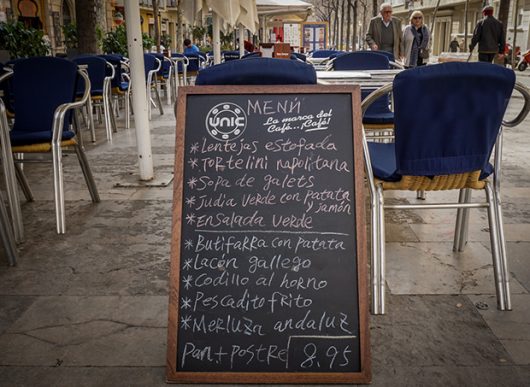 UNIC
MENÚ
La marca del
Café...¡Café!
*Lentejas estofada
*Tortelini napolitana
*Sopa de galets
*Judia verde con patata
y jamón
*Ensalada verde
*Butifarra con patata
*Lacón gallego
*Codillo al horno
*Pescadito frito
*Merluza andaluz
Pan + postre 8,95